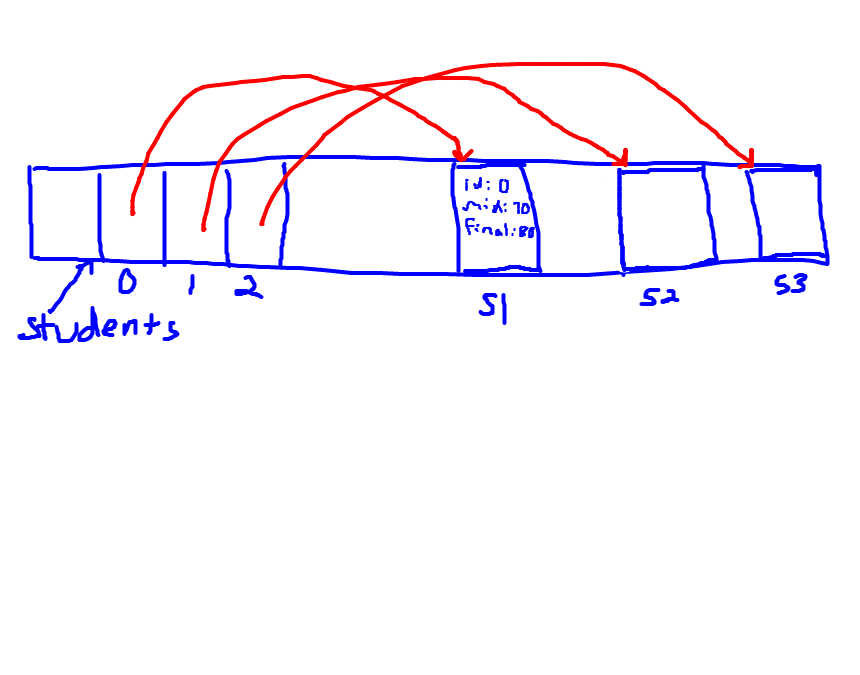 id: 0
mid: 70
final: 88
0 1 2
S1 S2 S3
students